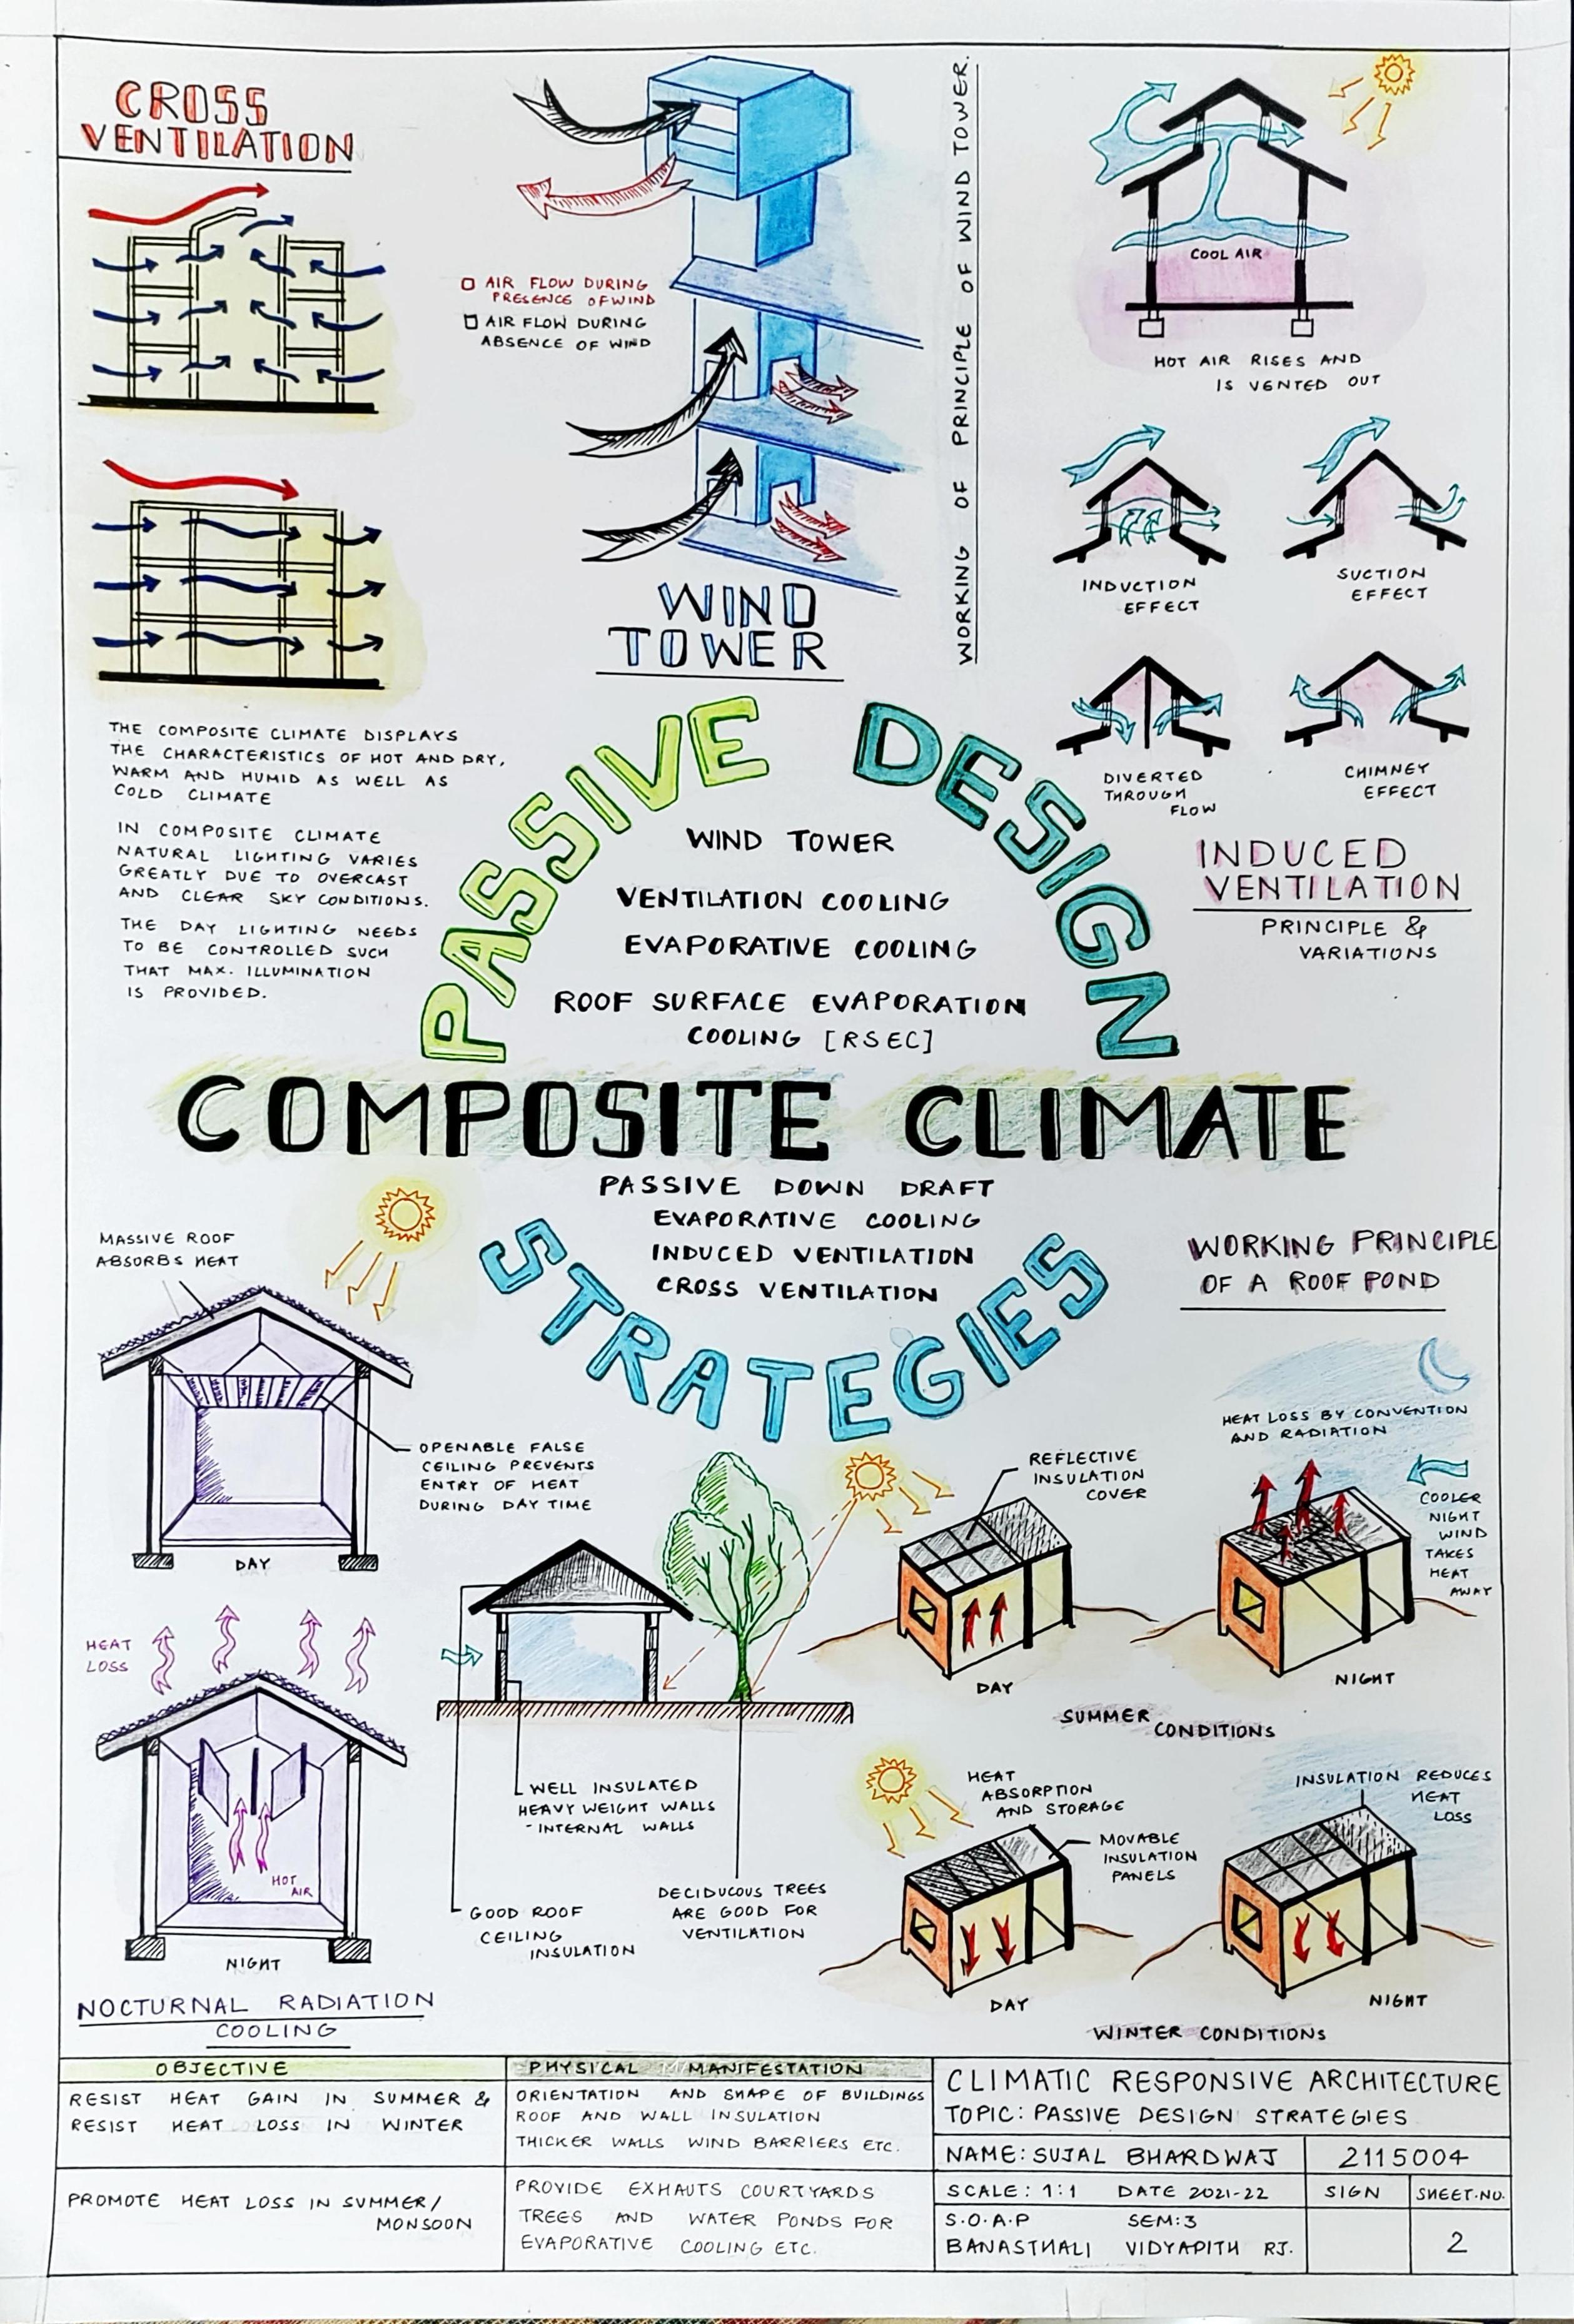 CROSS
VENTILATION
AIR FLOW DURING
PRESENCE OF WIND
AIR FLOW DURING
ABSENCE OF WIND
WIND
TOWER
WORKING OF PRINCIPLE OF WIND TOWER.
COOL AIR
HOT AIR RISES AND
IS VENTED OUT
INDUCTION
EFFECT
SUCTION
EFFECT
DIVERTED
THROUGH
FLOW
CHIMNEY
EFFECT
INDUCED
VENTILATION
PRINCIPLE &
VARIATIONS
THE COMPOSITE CLIMATE DISPLAYS
THE CHARACTERISTICS OF HOT AND DRY,
WARM AND HUMID AS WELL AS
COLD CLIMATE
IN COMPOSITE CLIMATE
NATURAL LIGHTING VARIES
GREATLY DUE TO OVERCAST
AND CLEAR SKY CONDITIONS.
THE DAY LIGHTING NEEDS
TO BE CONTROLLED SUCH
THAT MAX. ILLUMINATION
IS PROVIDED.
PASSIVE DESIGN
WIND TOWER
VENTILATION COOLING
EVAPORATIVE COOLING
ROOF SURFACE EVAPORATION
COOLING [RSEC]
COMPOSITE CLIMATE
PASSIVE DOWN DRAFT
EVAPORATIVE COOLING
INDUCED VENTILATION
CROSS VENTILATION
STRATEGIES
MASSIVE ROOF
ABSORBS HEAT
OPENABLE FALSE
CEILING PREVENTS
ENTRY OF HEAT
DURING DAY TIME
DAY
HEAT
LOSS
HOT
AIR
NIGHT
NOCTURNAL RADIATION
COOLING
WELL INSULATED
HEAVY WEIGHT WALLS
-INTERNAL WALLS
GOOD ROOF
CEILING
INSULATION
DECIDUCOUS TREES
ARE GOOD FOR
VENTILATION
WORKING PRINCIPLE
OF A ROOF POND
REFLECTIVE
INSULATION
COVER
DAY
HEAT LOSS BY CONVENTION
AND RADIATION
COOLER
NIGHT
WIND
TAKES
HEAT
AWAY
NIGHT
SUMMER
CONDITIONS
HEAT
ABSORPTION
AND STORAGE
MOVABLE
INSULATION
PANELS
DAY
INSULATION REDUCES
HEAT
LOSS
NIGHT
WINTER CONDITIONS
OBJECTIVE
RESIST HEAT GAIN IN SUMMER &
RESIST HEAT LOSS IN WINTER
PROMOTE HEAT LOSS IN SUMMER/
MONSOON
PHYSICAL MANIFESTATION
ORIENTATION AND SHAPE OF BUILDINGS
ROOF AND WALL INSULATION
THICKER WALLS WIND BARRIERS ETC.
PROVIDE EXHAUTS COURTYARDS
TREES AND WATER PONDS FOR
EVAPORATIVE COOLING ETC.
CLIMATIC RESPONSIVE ARCHITECTURE
TOPIC: PASSIVE DESIGN STRATEGIES
NAME: SUJAL BHARDWAJ 2115004
SCALE: 1:1 DATE 2021-22 SIGN SHEET.NO.
S.O.A.P SEM:3
BANASTHALI VIDYAPITH RJ. 2